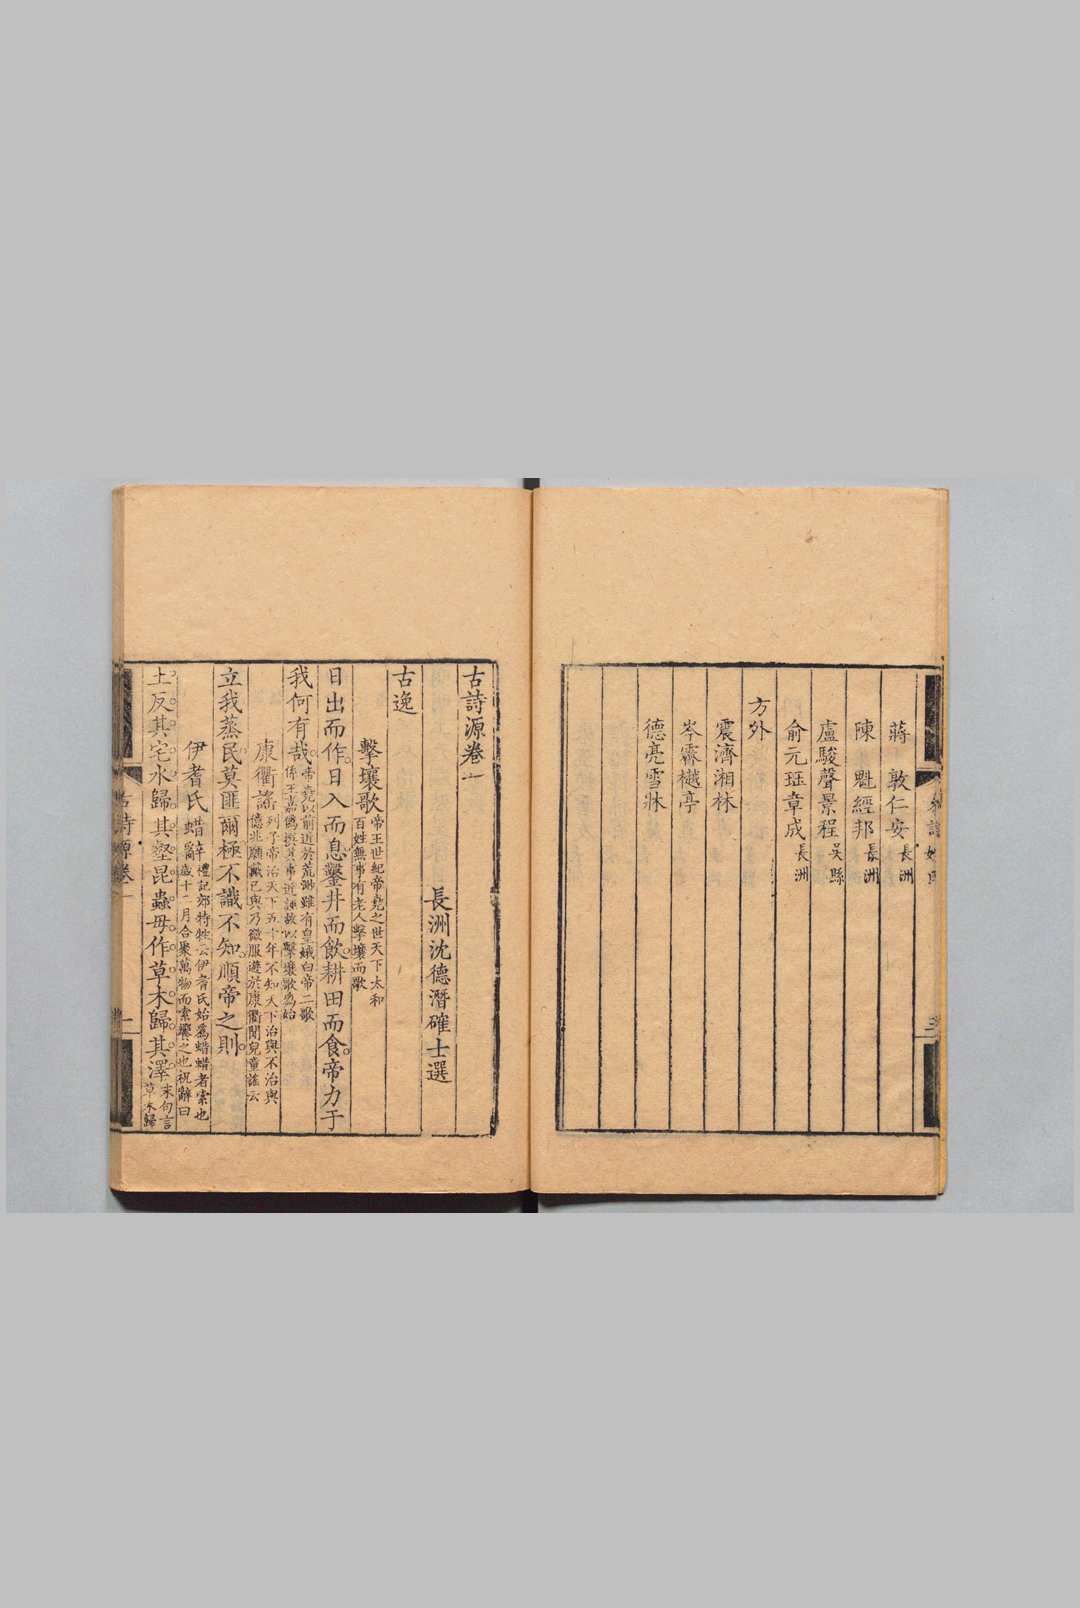 蔣敦仁安長洲
陳魁經邦長洲
盧駿聲景程吳縣
俞元珏章成長洲
方外
震濟湘林
岑霽樾亭
德亮雪牀
古詩源卷一
長洲沈德潛確士選
古逸
擊壤歌帝王世紀帝堯之世天下太和
百姓無事有老人擊壤而歌
日出而作。日入而息。鑿井而飲。耕田而食。帝力于
我何有哉。帝堯以前近於荒渺雖有皇娥白帝二歌
係王嘉偽撰其事近誣故以擊壤歌為始
康衢謠列子帝治天下五十年不知天下治與不治與
億兆願戴己與乃微服遊於康衢聞兒童謠云
立我蒸民。莫匪爾極。不識不知。順帝之則。
伊耆氏蜡辭禮記郊特牲云伊耆氏始爲蜡蜡者索也
歲十二月合聚萬物而索饗之也祝辭曰
土反其宅水歸其壑昆蟲毋作草木歸其澤末句言
草木歸
古詩源卷一
一